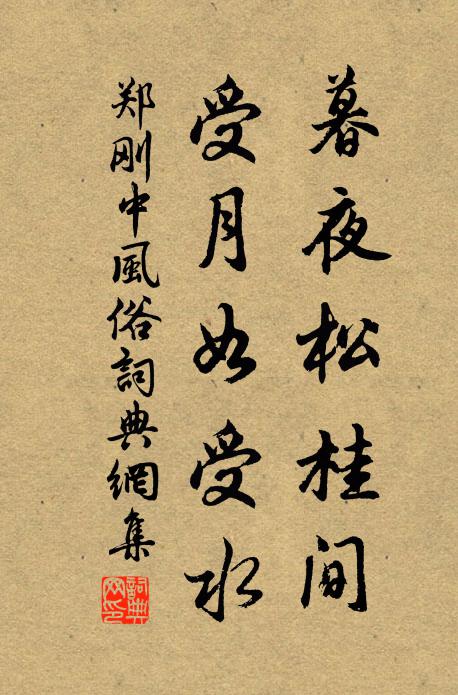 暮夜松桂间
受月如受水
郑刚中風俗詞典網集
詞典網印